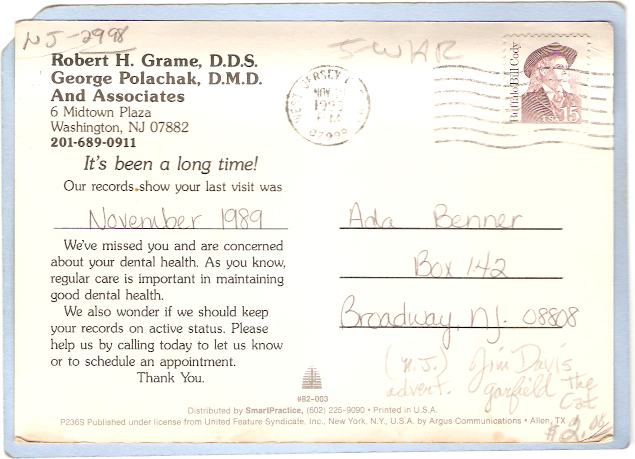 NJ-2998
Robert H. Grame, D.D.S.
George Polachak, D.M.D.
And Associates
6 Midtown Plaza
Washington, NJ 07882
201-689-0911
It's been a long time!
Our records show your last visit was
November 1989
We've missed you and are concerned
about your dental health. As you know,
regular care is important in maintaining
good dental health.
We also wonder if we should keep
your records on active status. Please
help us by calling today to let us know
or to schedule an appointment.
Thank You.
JERSEY
NOV
Buffalo Bill Cody
USA 15
Ada Benner
Box 142
Broadway, NJ. 08808
(N.J.) Jim Davis
advert. garfield the
Cat
#82-003
Distributed by SmartPractice, (602) 225-9090 • Printed in U.S.A.
P236S Published under license from United Feature Syndicate, Inc., New York, N.Y., U.S.A. by Argus Communications • Allen, TX